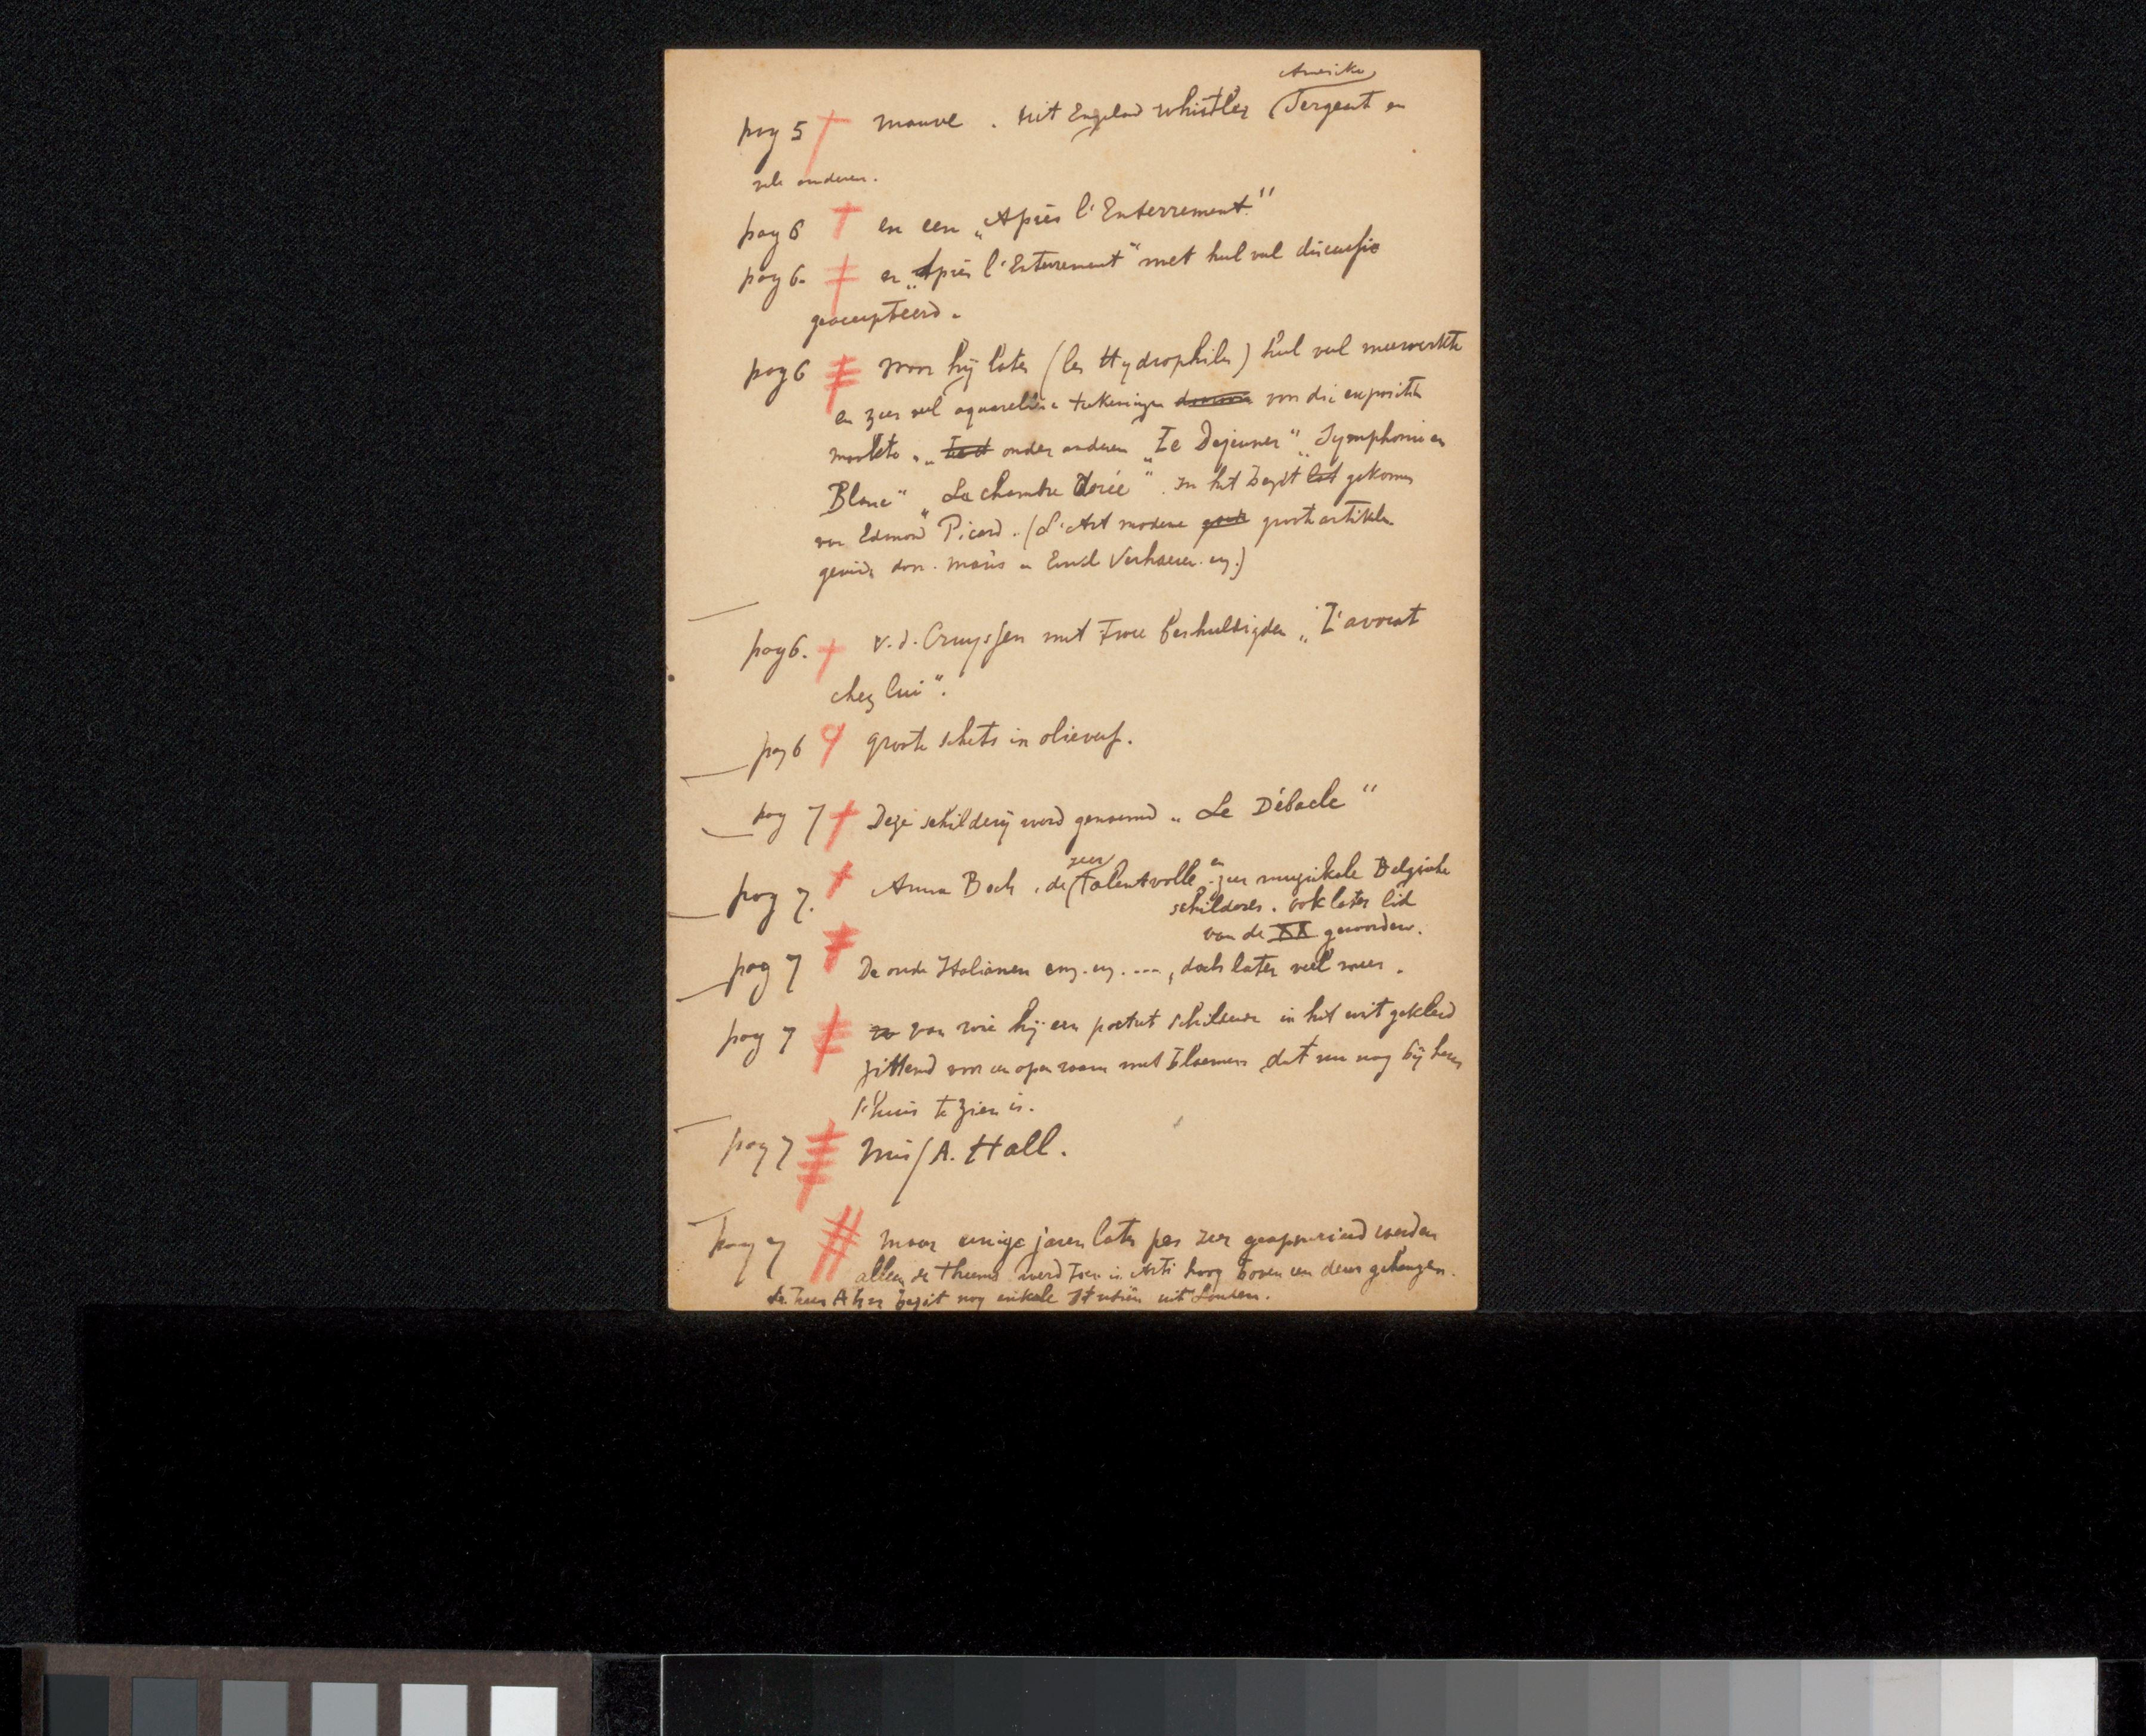 Amerika
pag 5 Mauve. uit Engeland Whistler (Sergent en
vele anderen.
pag 6 en een „Après l'Enterrement."
pag 6. en „Après l'Enterrement" met heel veel discussie
geaccepteerd.
pag 6 waar hij later (les Hydrophiles) heel veel meewerkte
en zeer veel aquarellen teekeningen voor die expositie
maakte. onder anderen „Le Dejeuner" „Symphonie en
Blanc" „La chambre dorée". in het bezit gekomen
van Edmond Picard. (L'Art moderne groote artikelen
door. Maus en Emile Verhaeren. enz.)
pag 6. v.d. Cruyssen met Twee beschuldigden „L'avocat
chez lui".
pag 6 groote schets in olieverf.
pag 7 Deze schilderij werd genoemd „Le Débacle"
pag 7. Anna Boch, de (zeer talentvolle en zeer muzikale Belgische
schilderes. ook later lid
van de XX geworden.
pag 7 De oude Italianen enz. enz. ...., doch later veel meer.
pag 7 van wie hij een portret schilderde in het wit gekleed
zittend voor een open raam met bloemen, dat nu nog bij haar
t'huis te zien is.
pag 7 Miss A. Hall.
pag 7 Maar eenige jaren later pas zeer geapprecieerd werden
alleen de Theems werd toen in Arti hoog boven een deur gehangen.
de heer bezit nog enkele Studiën uit Londen.